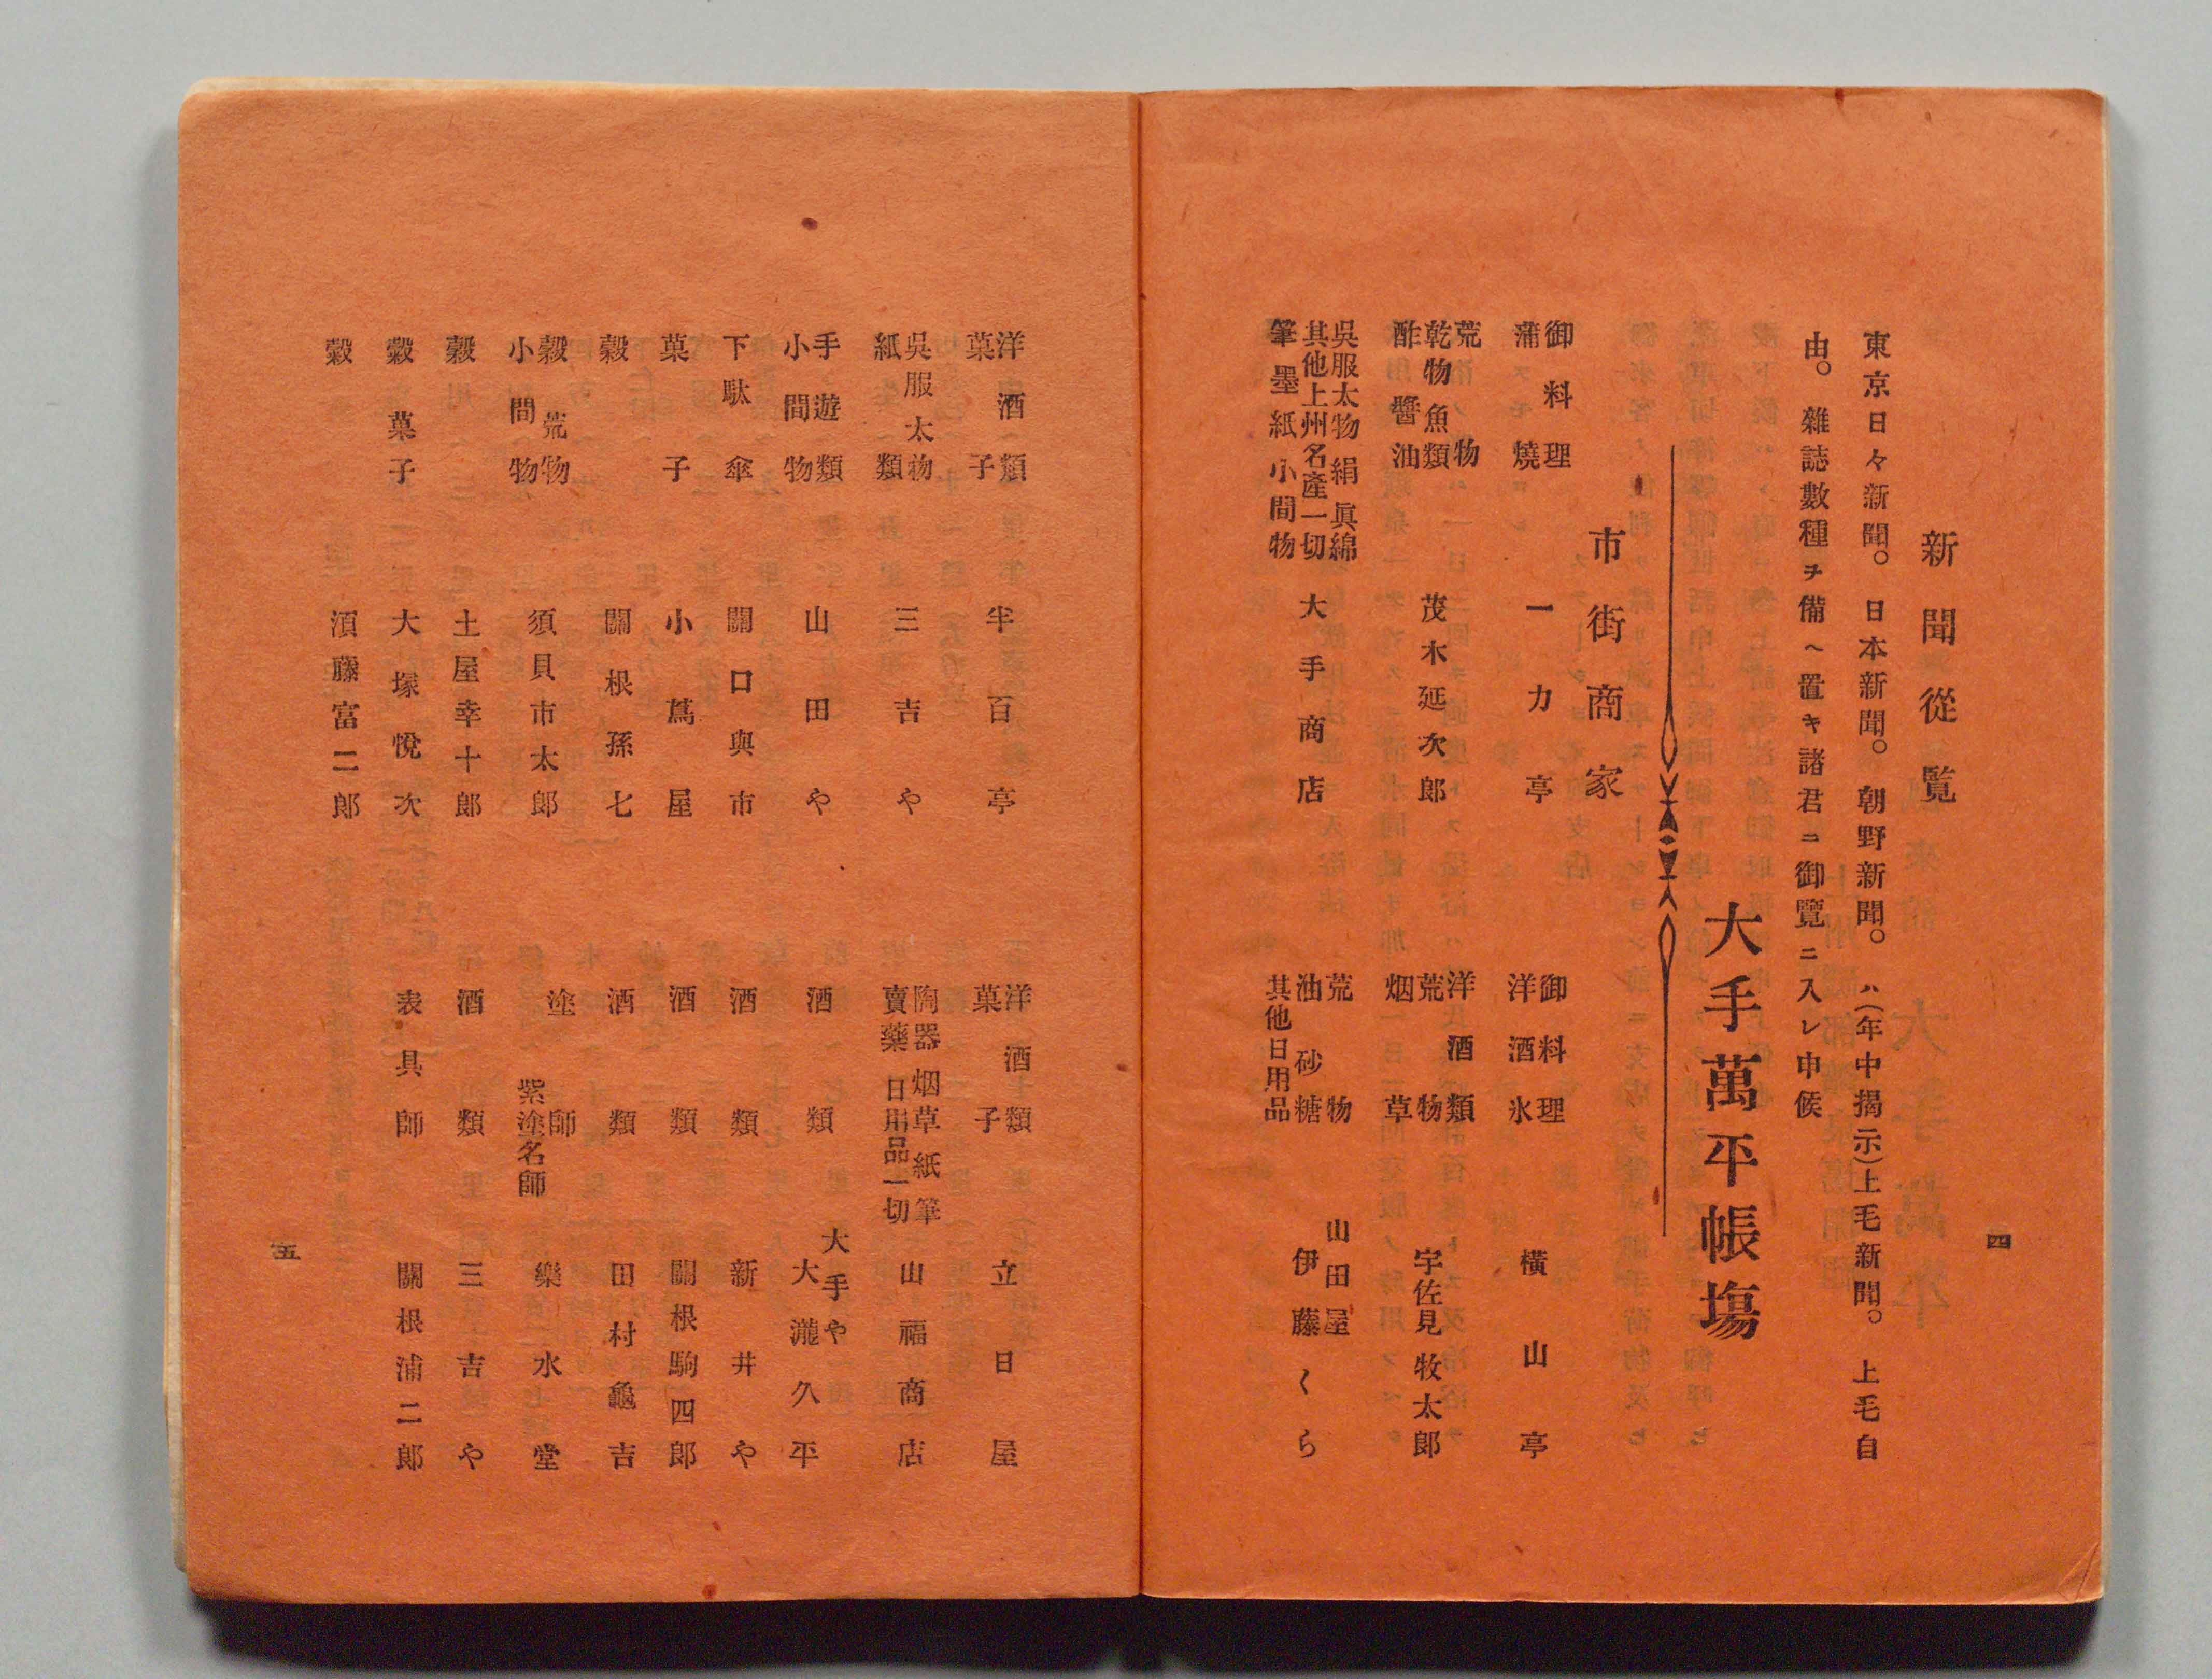 四
新聞從覧
東京日々新聞。日本新聞。朝野新聞。ハ(年中揭示)上毛新聞。上毛自
由。雜誌數種チ備ヘ置キ諸君ニ御覽ニ入レ申候
大手萬平帳塲
市街商家
御料理
蒲燒
一力亭
御料理
洋酒氷
横山亭
荒物
乾物魚類
酢醬油
茂木延次郎
洋酒類
荒物
烟草
宇佐見牧太郎
呉服太物絹眞綿
其他上州名產一切
筆墨紙小間物
大手商店
荒物
油砂糖
其他日用品
山田屋
伊藤くら
洋酒類
菓子
半百亭
洋酒類
菓子
立日屋
呉服太物
紙類
三吉や
陶器烟草紙筆
賣藥日用品一切
山福商店
手遊類
小間物
山田や
酒類
大手や
大瀧久平
下駄傘
關口與市
酒類
新井や
菓子
小蔦屋
酒類
關根駒四郎
穀
關根孫七
酒類
田村龜吉
穀荒物
小間物
須貝市太郎
塗師
紫塗名師
樂水堂
穀
土屋幸十郎
酒類
三吉や
穀菓子
大塚悅次
表具師
關根浦二郎
穀
須藤富二郎
五